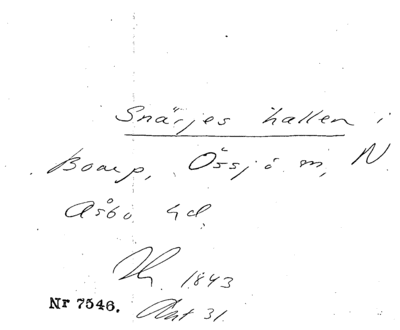 Snärjes hallen i
Boarp, Össjö m, N
Åsbo hd.
1843
Nr 7546. Akt 31.